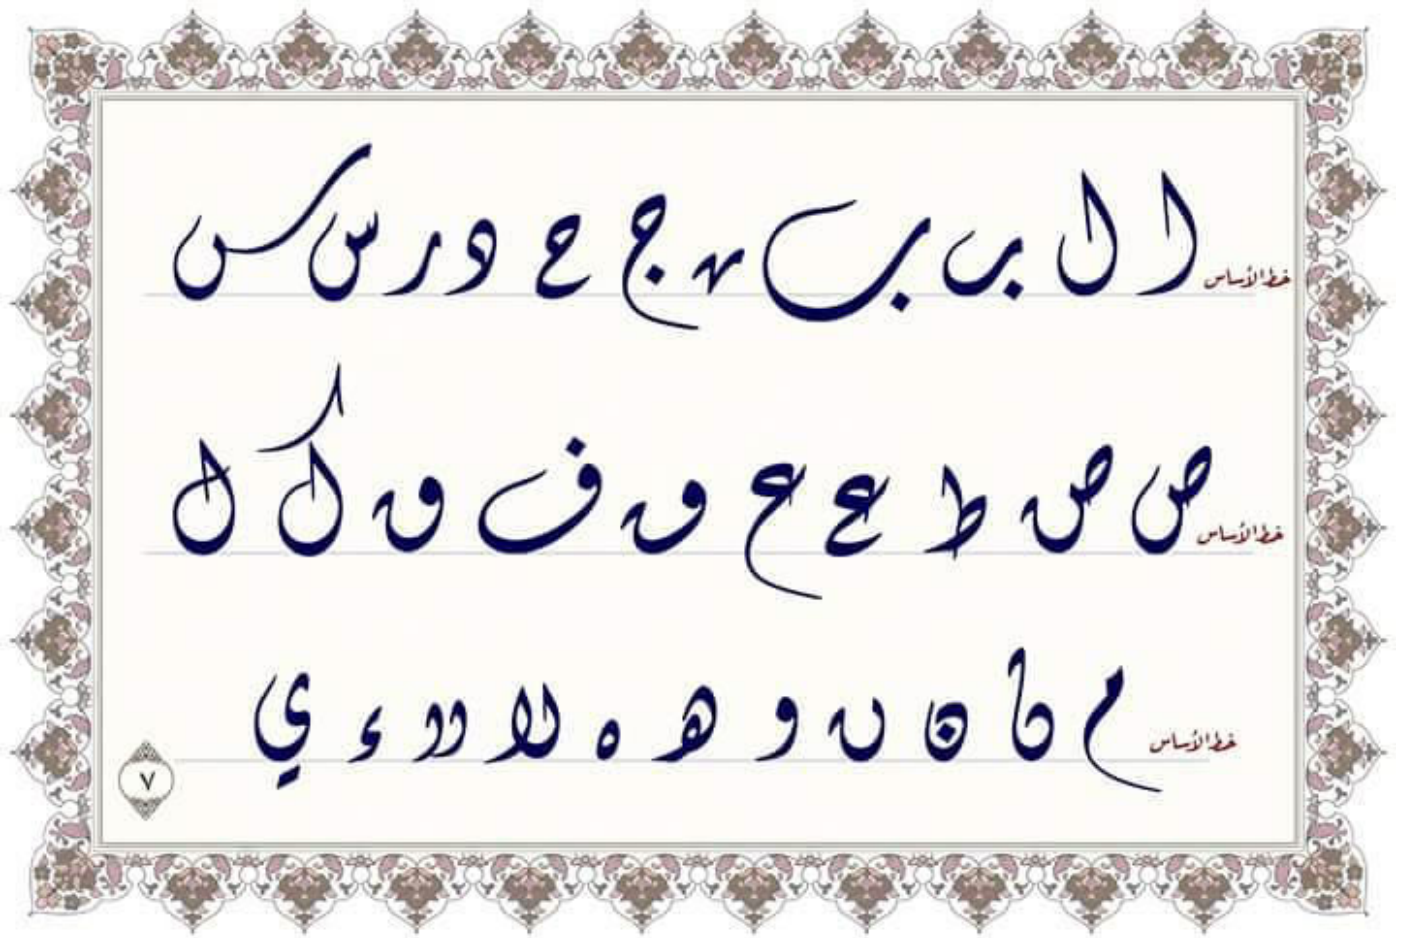 خط الأساس ا ل ب ب ہ ج ح د ر س س
خط الأساس ص ص ط ع ع ق ف ق ك ل
خط الأساس م ن ن و ه ه لا لا ء ي
٧